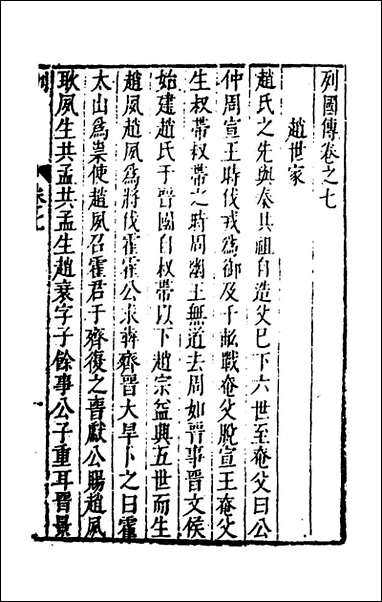 列國傳卷之七
趙世家
趙氏之先與秦共祖自造父巳下六世至奄父曰公
仲周宣王時伐戎爲御及千畝戰奄父脫宣王奄父
生叔帶叔帶之時周幽王無道去周如晉事晉文侯
始建趙氏于晉國自叔帶以下趙宗益興五世而生
趙夙趙夙爲將伐霍霍公求奔齊晉大旱卜之曰霍
太山爲祟使趙夙召霍君于齊復之晉獻公賜趙夙
耿夙生共孟共孟生趙衰字子餘事公子重耳晉景
卷之七
一